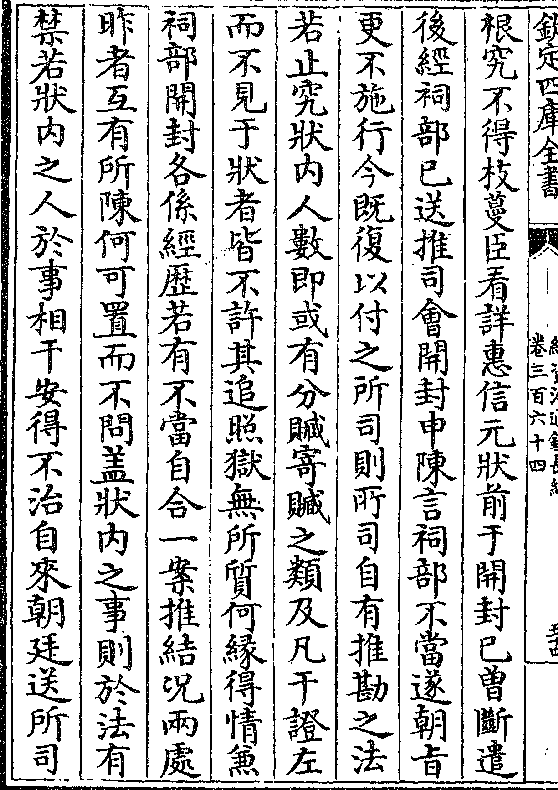 欽定四庫全書
卷三百六十四
根究不得枝蔓臣看詳惠信元狀前于開封已曽斷遣
後經祠部已送推司會開封申陳言祠部不當遂朝㫖
更不施行今既復以付之所司則所司自有推勘之法
若止究狀内人數即或有分贓寄贓之類及凡干證左
而不見于狀者皆不許其追照獄無所質何縁得情兼
祠部開封各係經歴若有不當自合一案推結况兩處
昨者互有所陳何可置而不問盖狀内之事則於法有
禁若狀内之人於事相干安得不治自來朝廷送所司